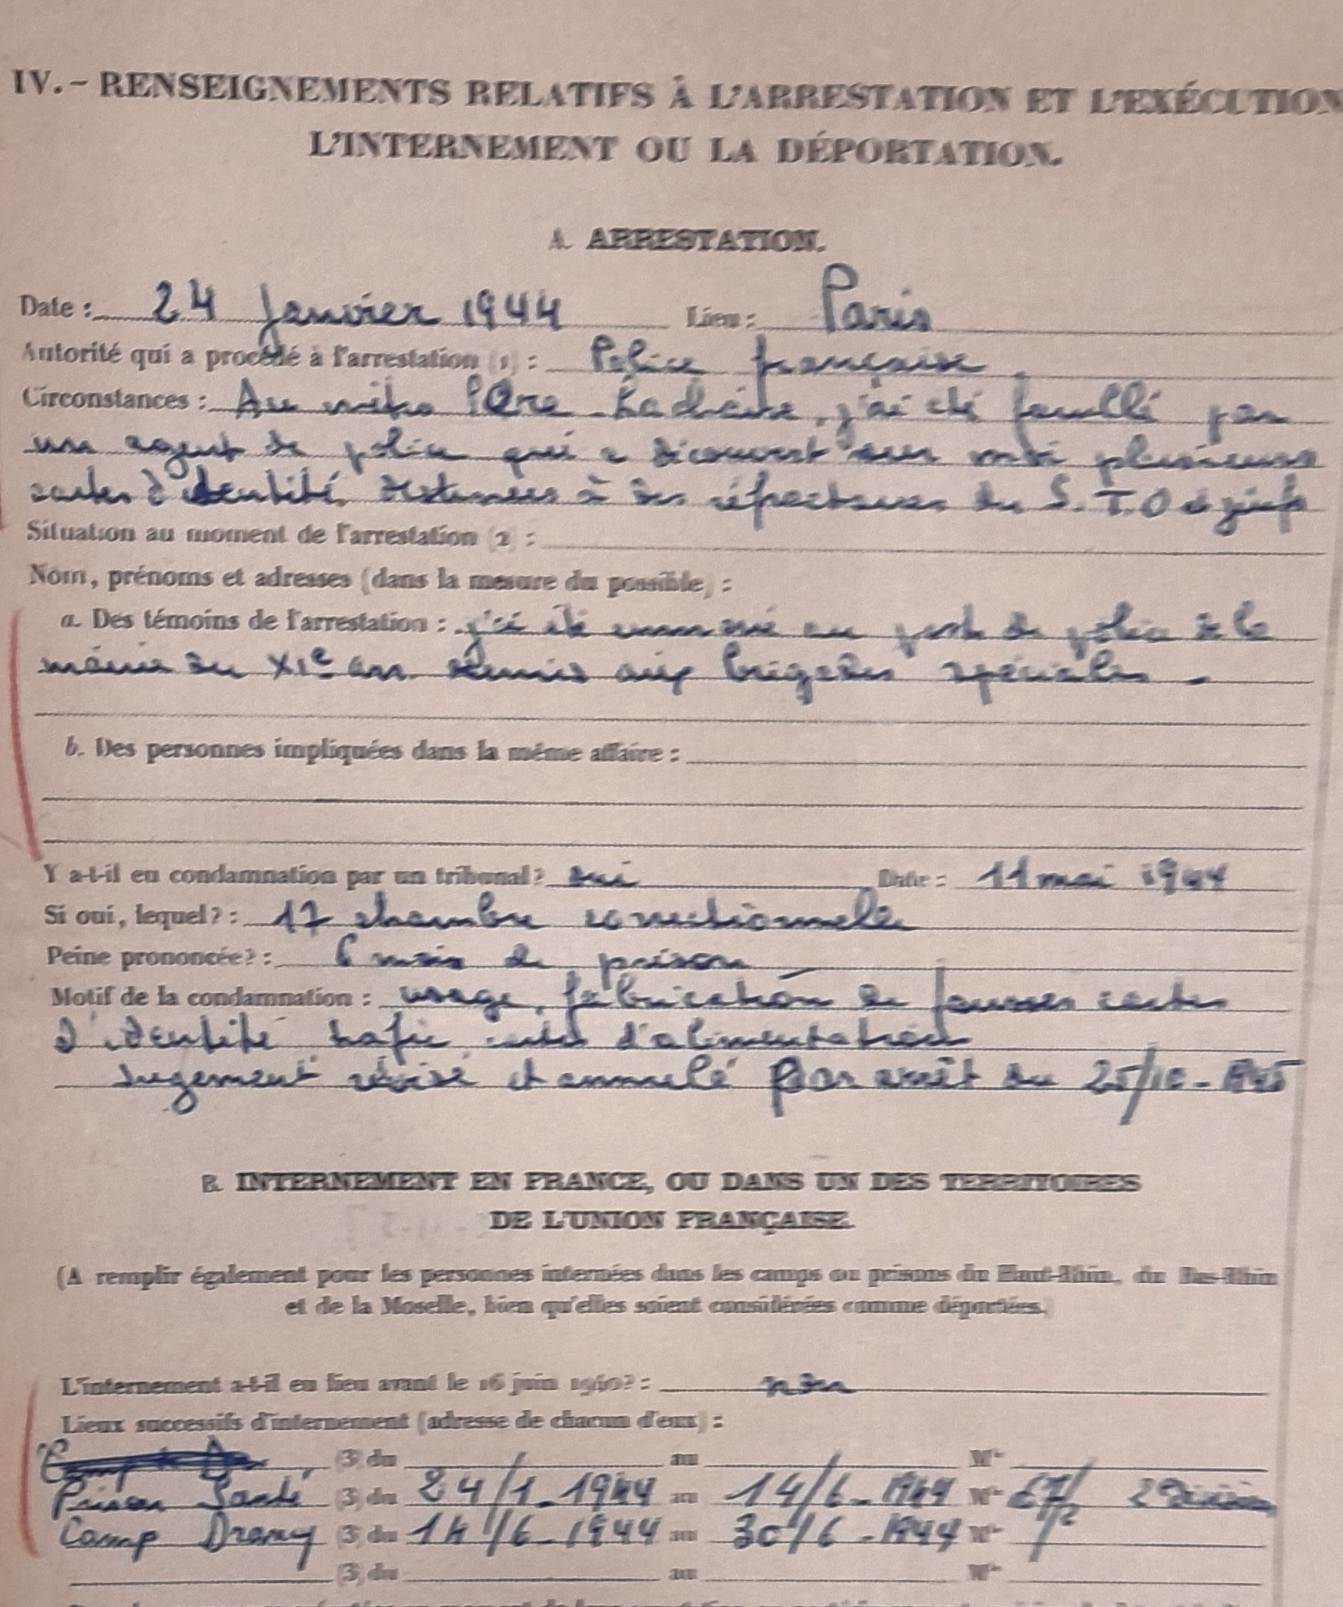 IV. - RENSEIGNEMENTS RELATIFS À L'ARRESTATION ET L'EXÉCUTION
L'INTERNEMENT OU LA DÉPORTATION.
A. ARRESTATION.
Date : 24 Janvier 1944 Lieu : Paris
Autorité qui a procédé à l'arrestation (1) : Police française
Circonstances : Au métro Père Lachaise, j'ai été fouillé par
un agent de police qui a découvert sur moi plusieurs
cartes d'identité destinées à des réfractaires du S.T.O et juifs
Situation au moment de l'arrestation (2) :
Nom, prénoms et adresses (dans la mesure du possible) :
a. Des témoins de l'arrestation : j'ai été emmené au poste de police de la
mairie du XIe arr. remis aux brigades spéciales -
b. Des personnes impliquées dans la même affaire :
Y a-t-il eu condamnation par un tribunal ? oui Date : 11 mai 1944
Si oui, lequel ? : 17 chambre correctionnelle
Peine prononcée ? : 6 mois de prison
Motif de la condamnation : usage, fabrication de fausses cartes
d'identité trafic cartes d'alimentation
Jugement révisé et annulé par arrêt du 25/10-1945
B. INTERNEMENT EN FRANCE, OU DANS UN DES TERRITOIRES
DE L'UNION FRANÇAISE.
(A remplir également pour les personnes internées dans les camps ou prisons du Haut-Rhin, du Bas-Rhin
et de la Moselle, bien qu'elles soient considérées comme déportées.)
L'internement a-t-il eu lieu avant le 16 juin 1940 ? : non
Lieux successifs d'internement (adresse de chacun d'eux) :
(3) du au Mle
Prison Santé (3) du 24/1-1944 au 14/6-1944 Mle 2e Division
Camp Drancy (3) du 14/6-1944 au 30/6-1944 Mle
(3) du au Mle